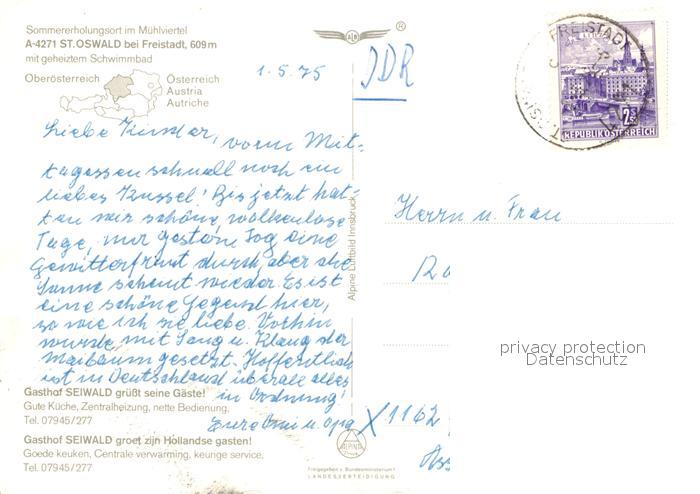 Sommererholungsort im Mühlviertel
A-4271 ST. OSWALD bei Freistadt, 609 m
mit geheiztem Schwimmbad
Oberösterreich
Österreich
Austria
Autriche
1.5.75
DDR
FREISTADT
2S50
REPUBLIK ÖSTERREICH
Liebe Kinder, vorm Mit-
tagessen schnell noch ein
liebes Küssel! Bis jetzt hat-
ten wir schöne, wolkenlose
Tage, nur gestern zog eine
Gewitterfront durch, aber die
Sonne scheint wieder. Es ist
eine schöne Gegend hier,
so wie ich sie liebe. Vorhin
wurde mit Sang u. Klang der
Maibaum gesetzt. Hoffentlich
ist in Deutschland überall alles
in Ordnung!
Eure Omi u. Opa
Gasthof SEIWALD grüßt seine Gäste!
Gute Küche, Zentralheizung, nette Bedienung,
Tel. 07945/277
Gasthof SEIWALD groet zijn Hollandse gasten!
Goede keuken, Centrale verwarming, keunge service,
Tel. 07945/277
Alpine Luftbild Innsbruck
ALPINE
Freigegeben v. Bundesministerium f.
LANDESVERTEIDIGUNG
Herrn u. Frau
X 1162
privacy protection
Datenschutz